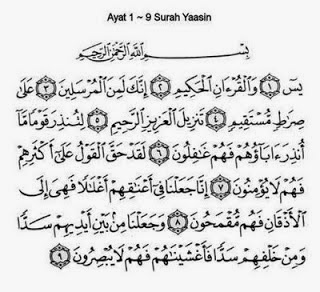 Ayat 1 ~ 9 Surah Yaasin
بِسْمِ اللَّهِ الرَّحْمَٰنِ الرَّحِيمِ
يسٓ ﴿١﴾ وَالْقُرْءَانِ الْحَكِيمِ ﴿٢﴾ إِنَّكَ لَمِنَ الْمُرْسَلِينَ ﴿٣﴾ عَلَىٰ
صِرَٰطٍ مُّسْتَقِيمٍ ﴿٤﴾ تَنزِيلَ الْعَزِيزِ الرَّحِيمِ ﴿٥﴾ لِتُنذِرَ قَوْمًا مَّا
أُنذِرَ ءَابَآؤُهُمْ فَهُمْ غَٰفِلُونَ ﴿٦﴾ لَقَدْ حَقَّ الْقَوْلُ عَلَىٰٓ أَكْثَرِهِمْ
فَهُمْ لَا يُؤْمِنُونَ ﴿٧﴾ إِنَّا جَعَلْنَا فِىٓ أَعْنَٰقِهِمْ أَغْلَٰلًا فَهِىَ إِلَى
الْأَذْقَانِ فَهُم مُّقْمَحُونَ ﴿٨﴾ وَجَعَلْنَا مِنۢ بَيْنِ أَيْدِيهِمْ سَدًّا
وَمِنْ خَلْفِهِمْ سَدًّا فَأَغْشَيْنَٰهُمْ فَهُمْ لَا يُبْصِرُونَ ﴿٩﴾